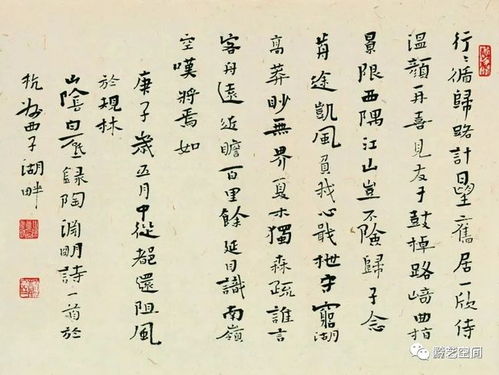 行〻循歸路計日望舊居一欣侍
溫顏再喜見友于鼓棹路崎曲指
景限西隅江山豈不險歸子念
前途凱風負我心戢枻守窮湖
高莽眇無界夏木獨森疏誰言
客舟遠近瞻百里餘延目識南嶺
空嘆將焉如
庚子歲五月中從都還阻風
於規林
山陰白砥錄陶淵明詩一首於
杭州西子湖畔
艺空间